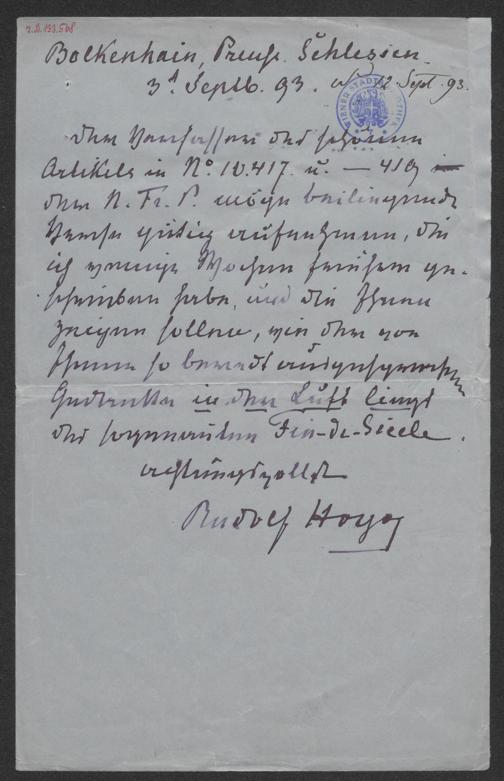 I.N. 133.508
Bolkenhain, Preuß. Schlesien.
3t Septb. 93. 12. Sept. 93.
WIENER STADTBIBLIOTHEK
Dem Verfasser des schönen
Artikels in No 10.417. u. — 419
der N. Fr. P. möge beiliegende
Verse gütig aufnehmen, die
ich wenige Wochen früher ge-
schrieben habe, und die Ihnen
zeigen sollen, wie der von
Ihnen so beredt ausgesprochene
Gedanke in der Luft liegt
des sogenannten Fin-de-Siècle.
achtungsvollst
Rudolf Hoyos